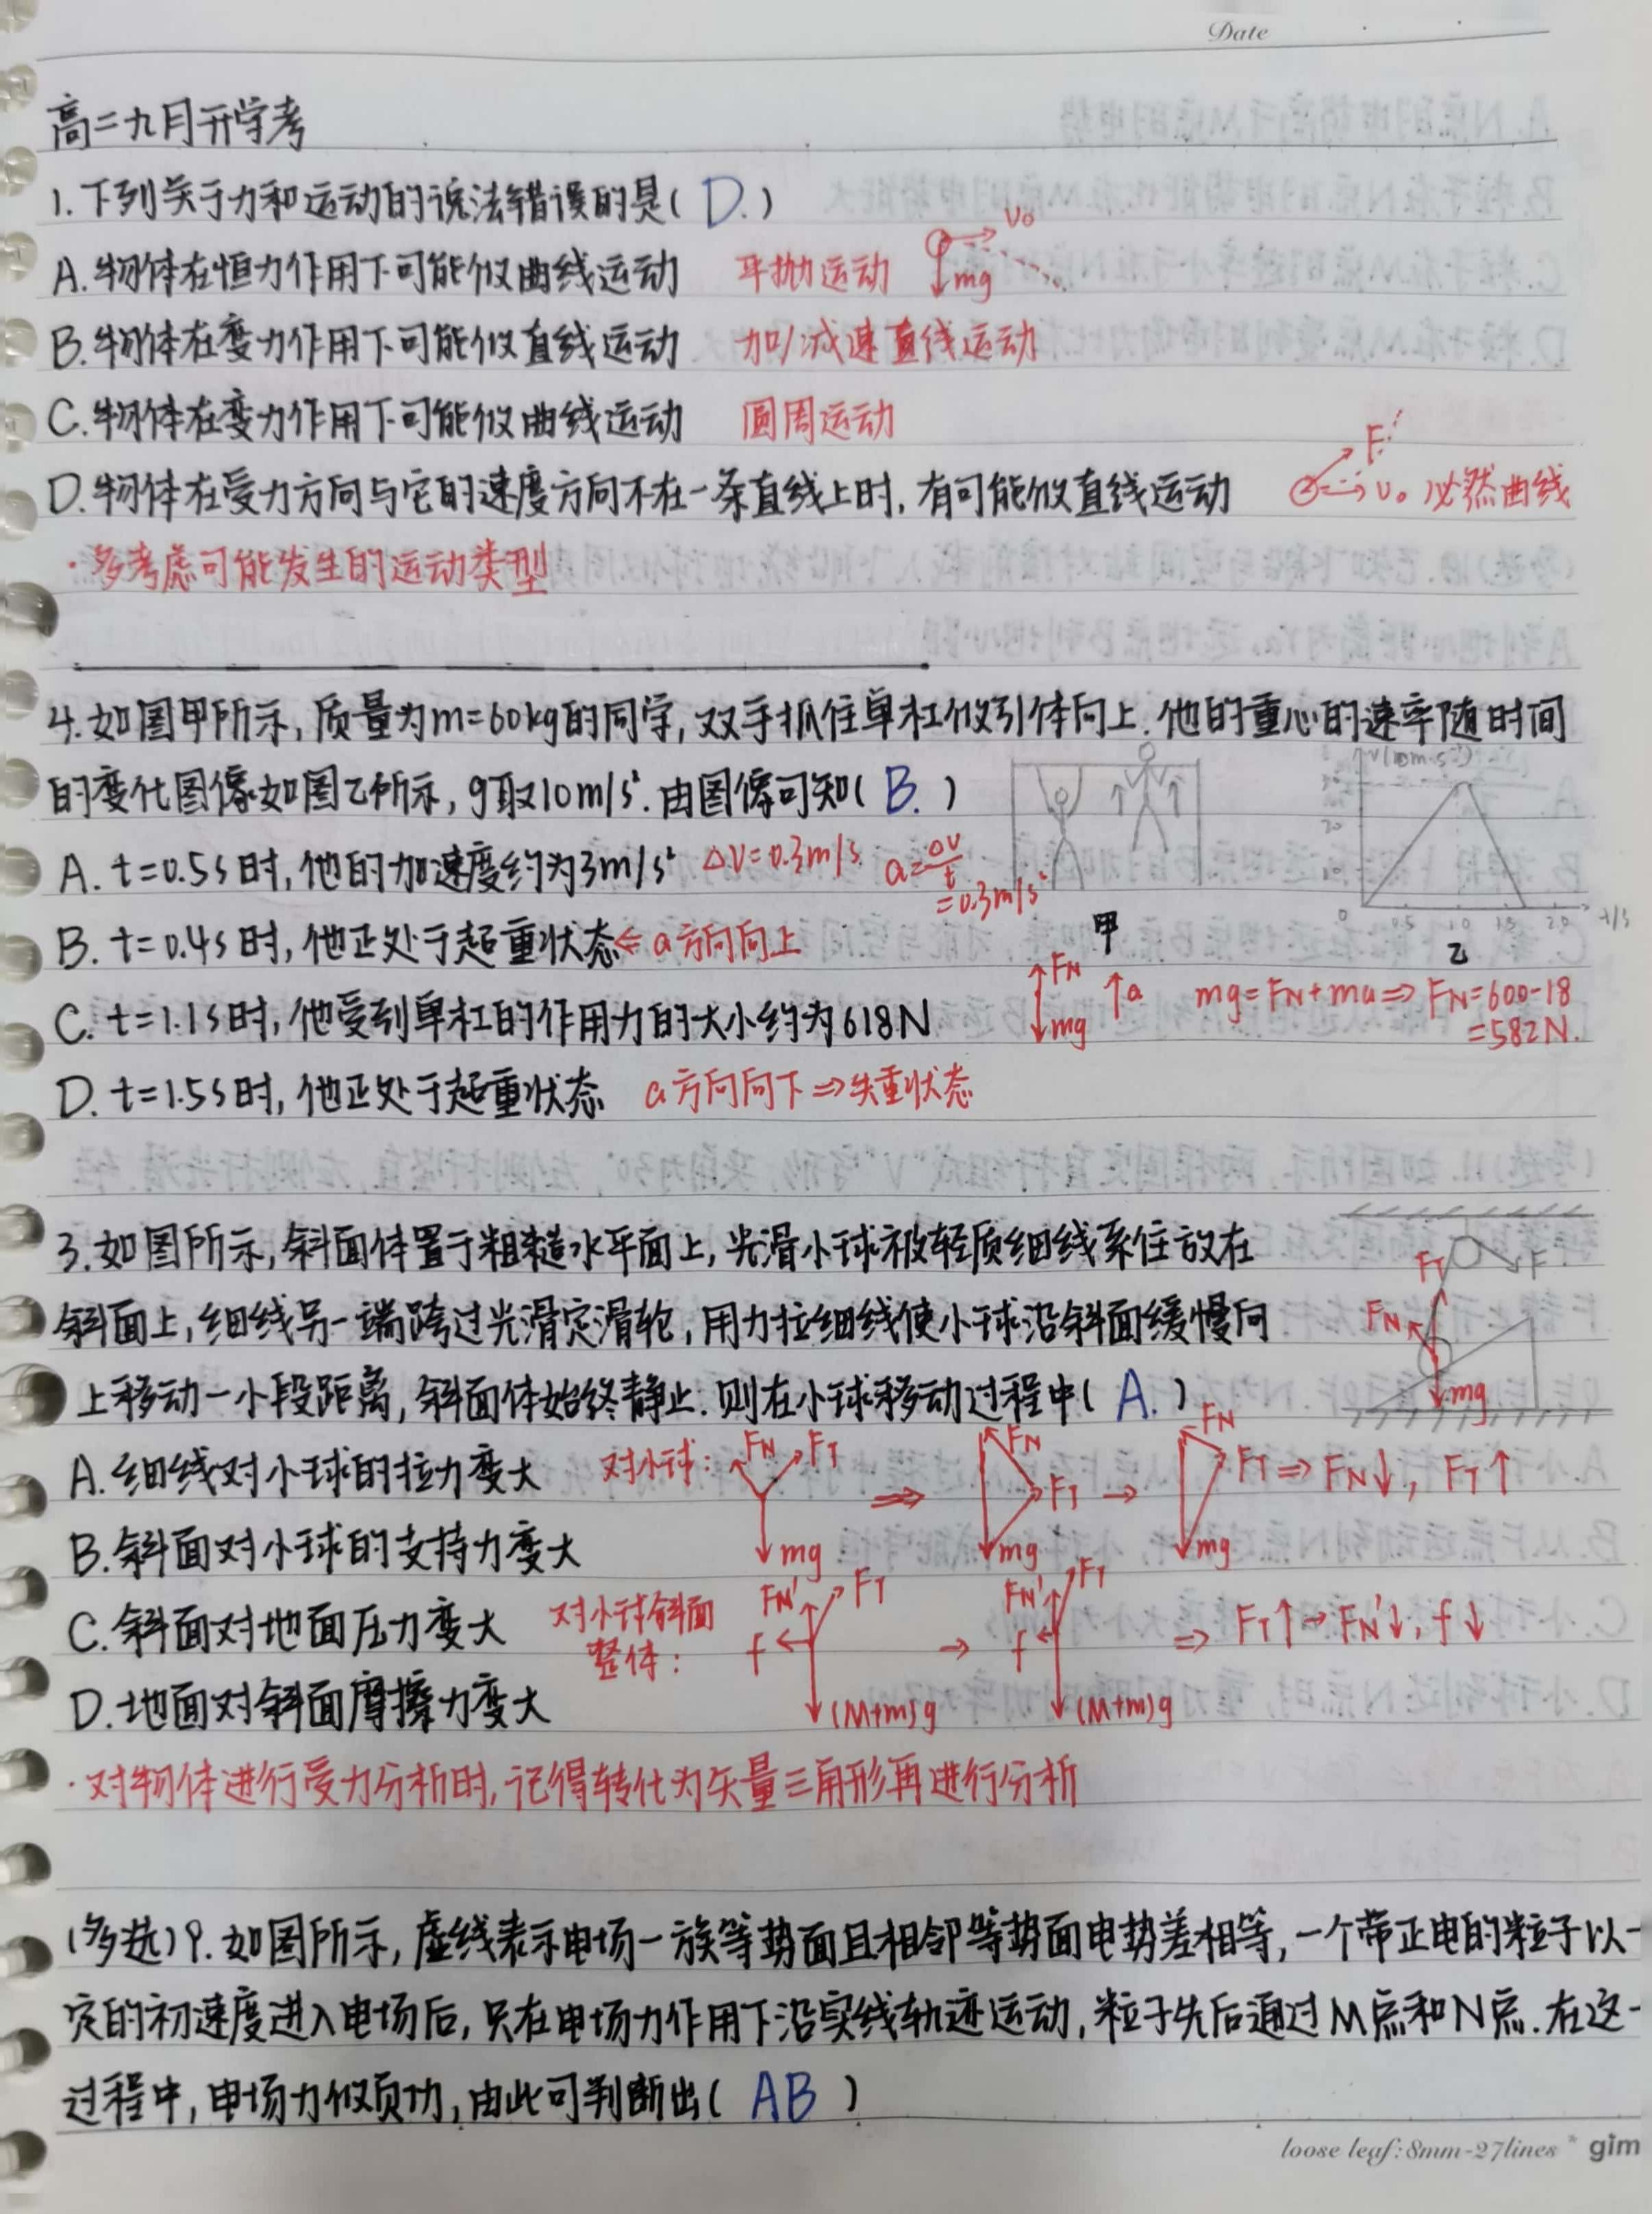 Date
高二九月开学考
1.下列关于力和运动的说法错误的是( D. )
A.物体在恒力作用下可能做曲线运动 平抛运动 v₀ mg
B.物体在变力作用下可能做直线运动 加/减速直线运动
C.物体在变力作用下可能做曲线运动 圆周运动
D.物体在受力方向与它的速度方向不在一条直线上时,有可能做直线运动 F v₀ 必然曲线
·多考虑可能发生的运动类型
4.如图甲所示,质量为m=60kg的同学,双手抓住单杠做引体向上.他的重心的速率随时间
的变化图像如图乙所示,g取10m/s².由图像可知( B. )
A. t=0.5s时,他的加速度约为3m/s² ΔV=0.3m/s a=ΔV/t =0.3m/s²
B. t=0.4s时,他正处于超重状态⇐a方向向上 甲 乙
C. t=1.1s时,他受到单杠的作用力的大小约为618N FN mg ↑a mg=FN+ma⇒FN=600-18
=582N.
D. t=1.5s时,他正处于超重状态 a方向向下⇒失重状态
3.如图所示,斜面体置于粗糙水平面上,光滑小球被轻质细线系住放在
斜面上,细线另一端跨过光滑定滑轮,用力拉细线使小球沿斜面缓慢向
上移动一小段距离,斜面体始终静止.则在小球移动过程中( A. )
FT F FN mg
A.细线对小球的拉力变大 对小球: FN FT mg ⇒ FN FT mg → FN FT mg ⇒FN↓, FT↑
B.斜面对小球的支持力变大
C.斜面对地面压力变大 对小球斜面
整体: FN' FT f (M+m)g → FN' FT f (M+m)g ⇒ FT↑→FN'↓, f↓
D.地面对斜面摩擦力变大
·对物体进行受力分析时,记得转化为矢量三角形再进行分析
(多选)9.如图所示,虚线表示电场一族等势面且相邻等势面电势差相等,一个带正电的粒子以一
定的初速度进入电场后,只在电场力作用下沿实线轨迹运动,粒子先后通过M点和N点.在这一
过程中,电场力做负功,由此可判断出( AB )
loose leaf:8mm-27lines * gim